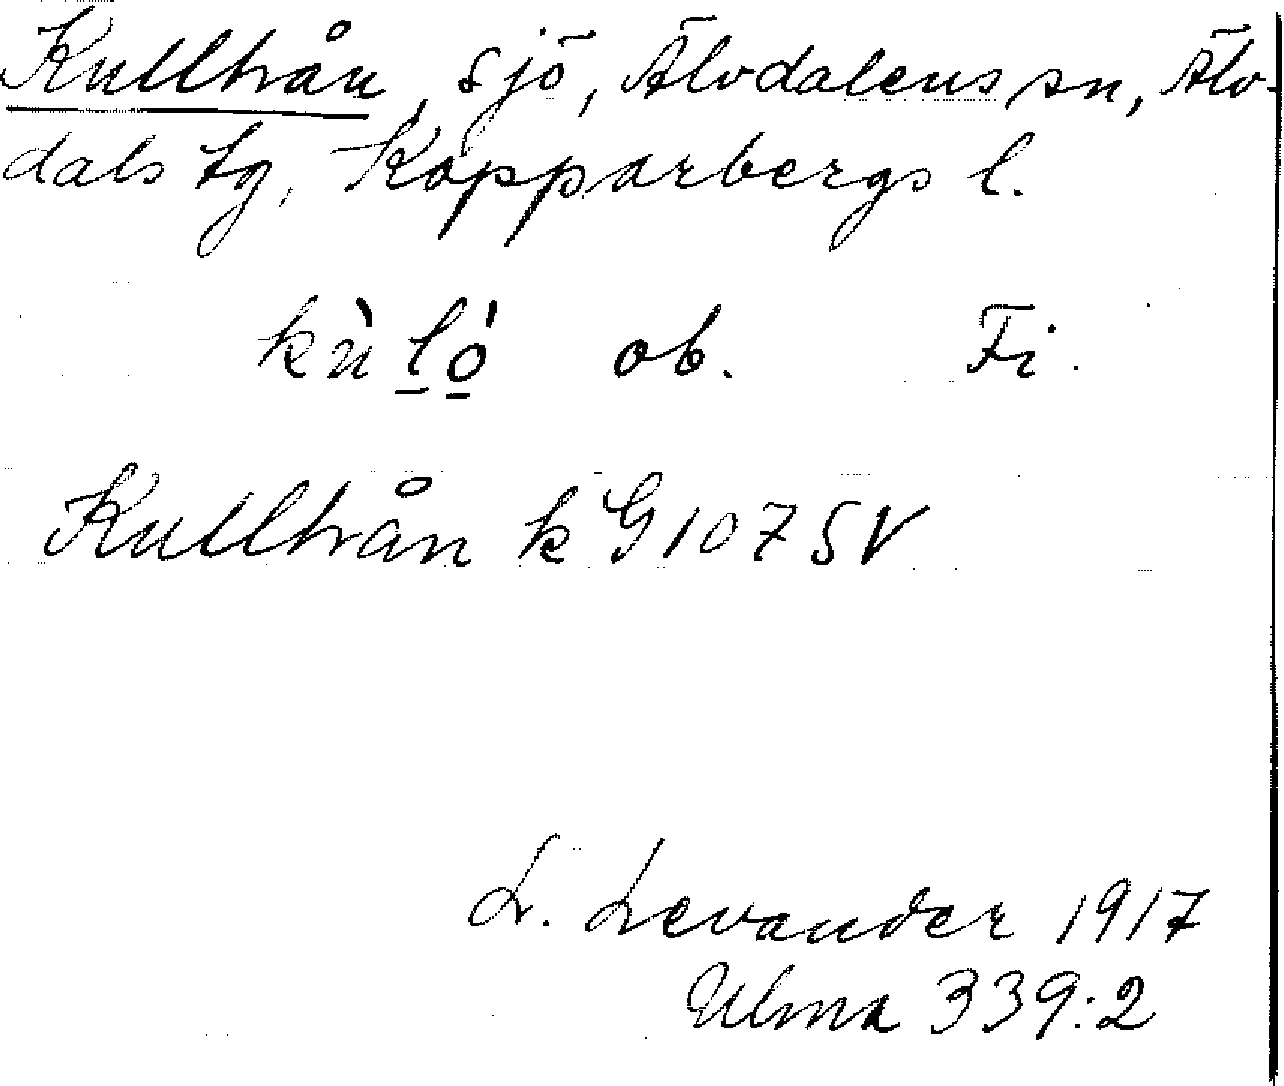 Kullhån, sjö, Älvdalens sn, Älv-
dals tg, Kopparbergs l.
kùló ob. Fi.
Kullhån k G1075V
L. Levander 1917
Ulma 339:2